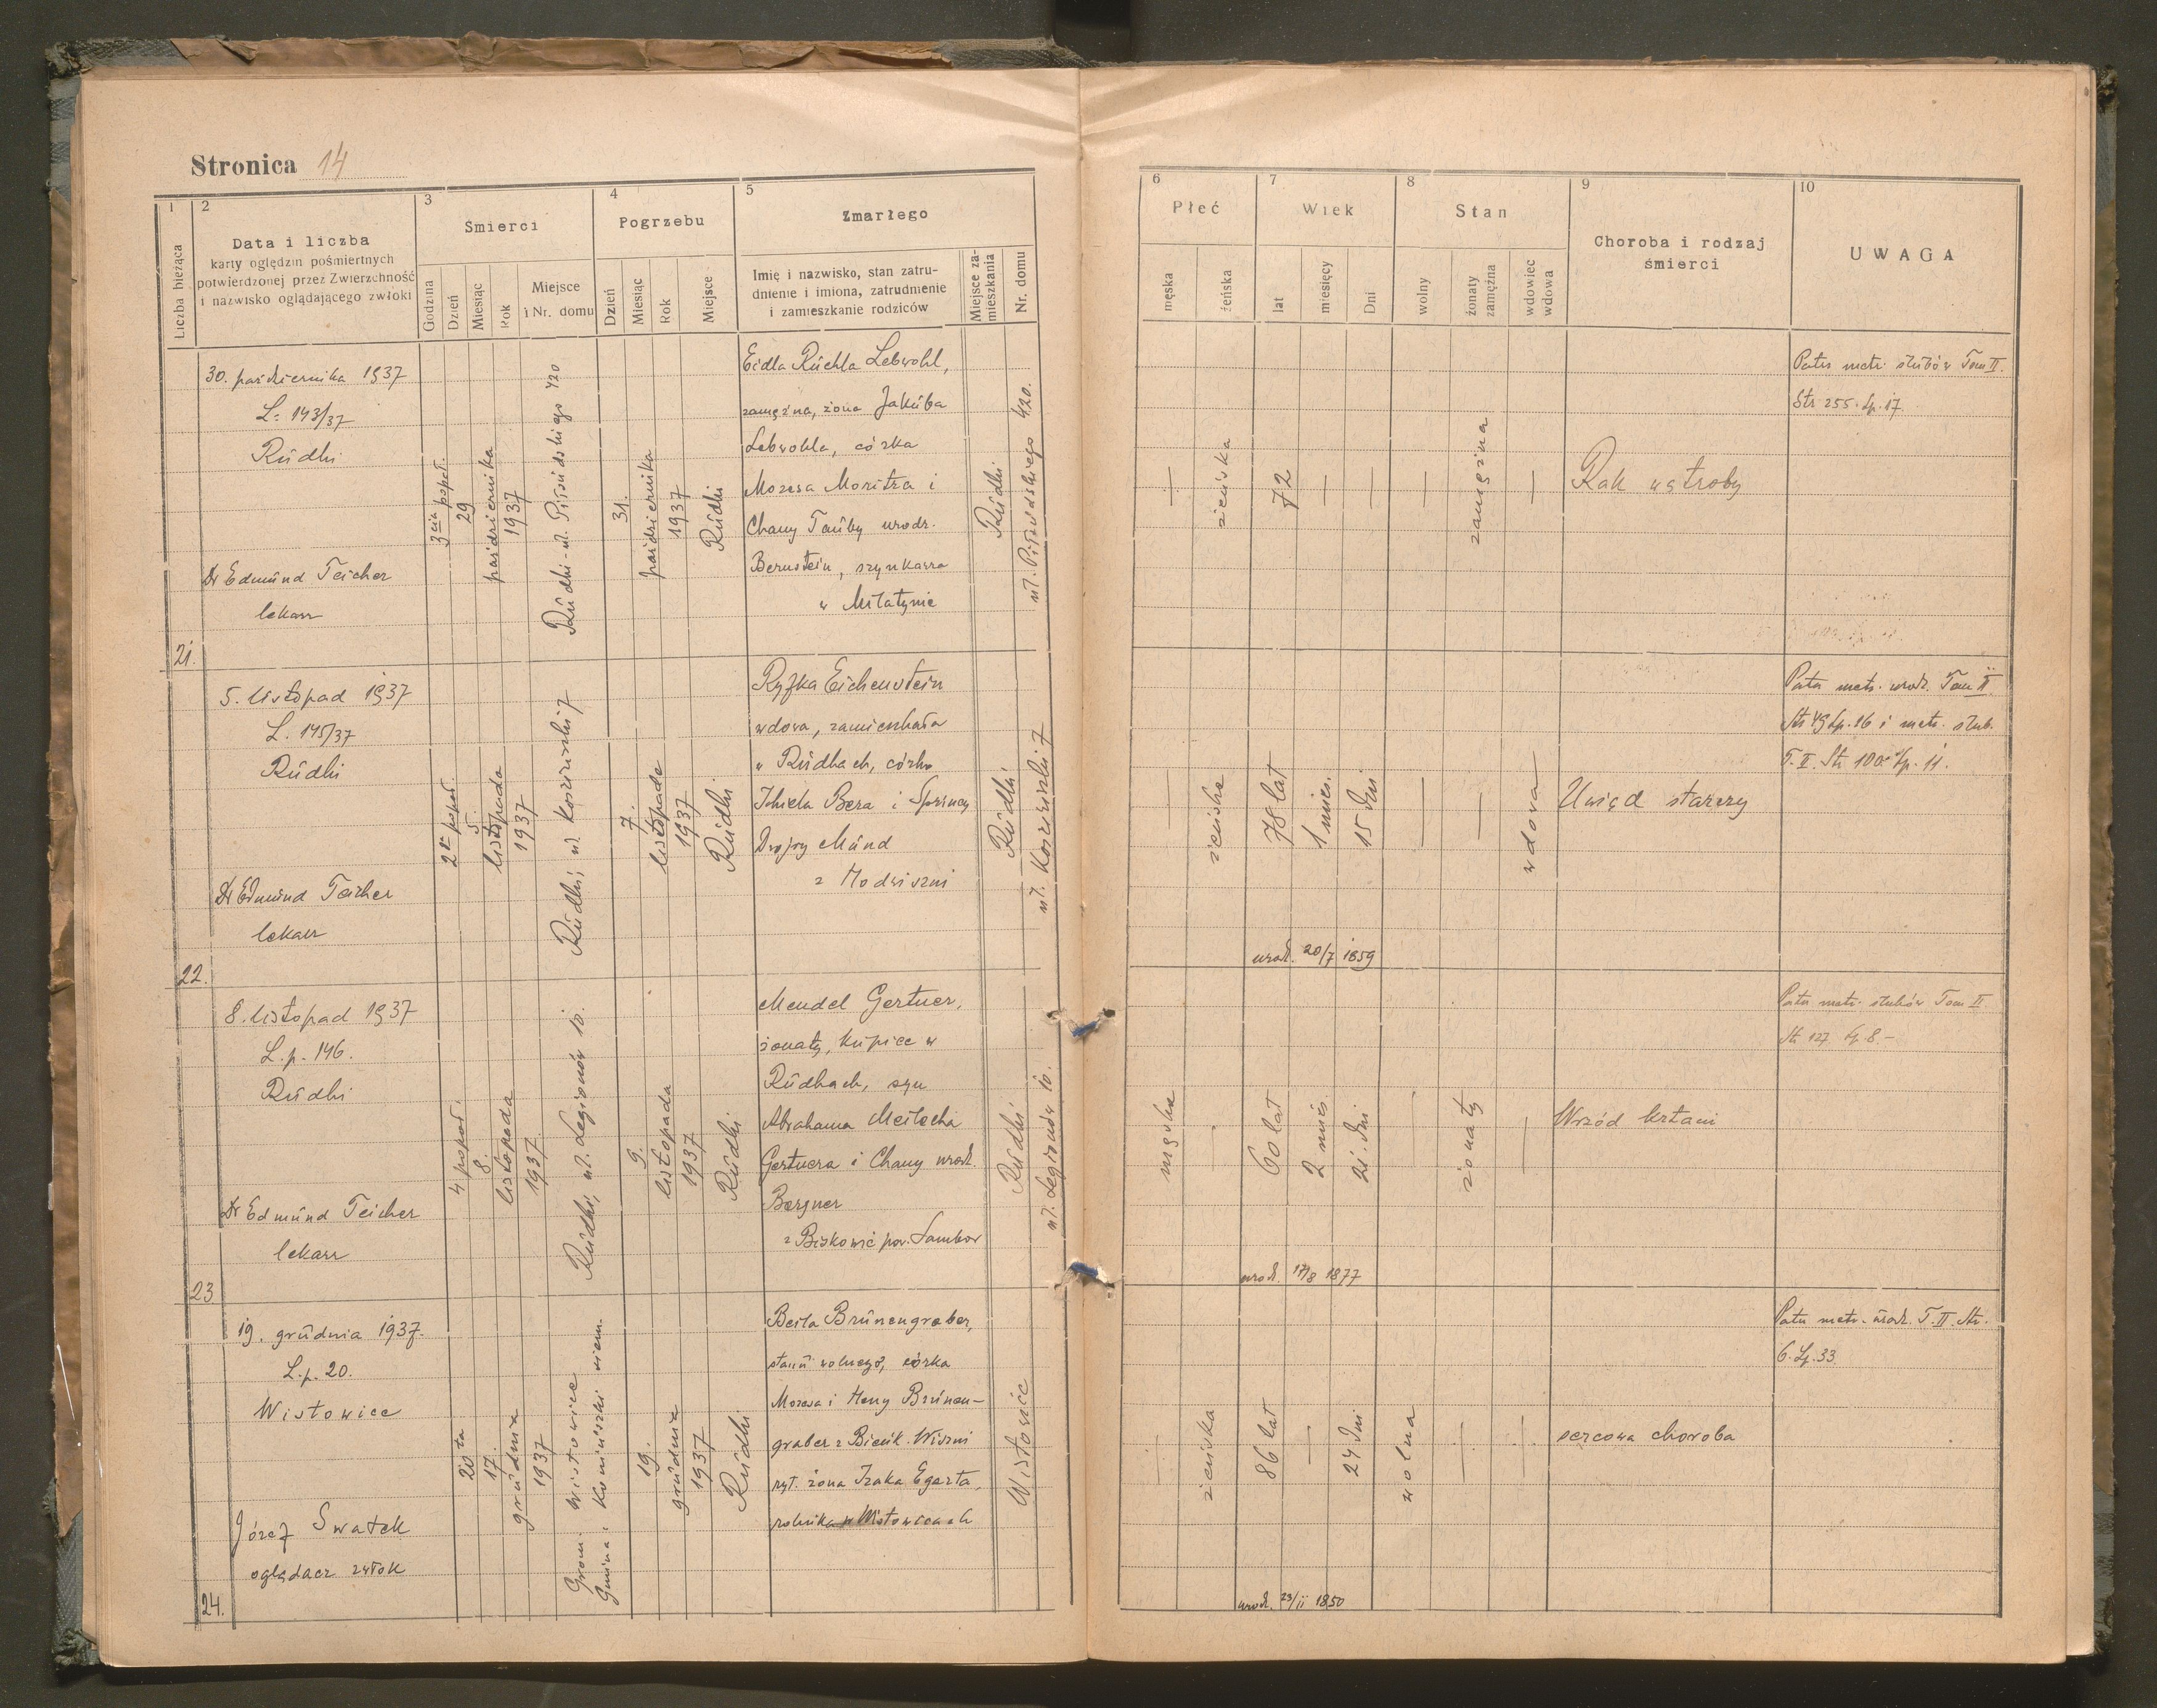 Stronica 14
1
2
3
4
5
6
7
8
9
10
Liczba bieżąca
Data i liczba
karty oględzin pośmiertnych
potwierdzonej przez Zwierzchność
i nazwisko oglądającego zwłoki
Śmierci
Godzina
Dzień
Miesiąc
Rok
Miejsce
i Nr. domu
Pogrzebu
Dzień
Miesiąc
Rok
Miejsce
Zmarłego
Imię i nazwisko, stan zatru-
dnienie i imiona, zatrudnienie
i zamieszkanie rodziców
Miejsce za-
mieszkania
Nr. domu
Płeć
męska
żeńska
Wiek
lat
miesięcy
Dni
Stan
wolny
żonaty
zamężna
wdowiec
wdowa
Choroba i rodzaj
śmierci
UWAGA
21.
30. października 1937
L: 143/37
Rudki
Dr Edmund Teicher
lekarz
3cia popoł.
29
października
1937
Rudki - ul. Piłsudskiego 420
31.
października
1937
Rudki
Eidla Ruchla Lebwohl,
zamężna, żona Jakuba
Lebwohla, córka
Mozesa Moritza i
Chany Tauby urodz.
Bernstein, szynkarza
w Milatynie
Rudki
ul. Piłsudskiego 420.
—
żeńska
72
—
—
—
zamężna
—
Rak wątroby
Patrz metr. ślubów Tom II.
Str 255. Lp. 17.
22.
5. listopad 1937
L. 145/37
Rudki
Dr Edmund Teicher
lekarz
2ga popoł.
5.
listopada
1937
Rudki, ul. Kościuszki 7
7.
listopada
1937
Rudki
Ryfka Eichenstein
wdowa, zamieszkała
w Rudkach, córka
Ichiela Bera i Sprincy
Dwojry Münd
z Hodwiszni
Rudki
ul. Kościuszki 7
—
żeńska
78 lat
1 mies.
15 dni
—
—
wdowa
urodz. 20/7 1859
Uwiąd starczy
Patrz metr. urodz. Tom II.
Str 49 Lp. 16 i metr. ślub.
T. II. Str. 100 Lp. 11.
23
8. listopad 1937
L.p. 146.
Rudki
Dr Edmund Teicher
lekarz
4 popoł.
8.
listopada
1937.
Rudki, ul. Legionów 10.
9.
listopada
1937
Rudki
Mendel Gertner,
żonaty, kupiec w
Rudkach, syn
Abrahama Meilecha
Gertnera i Chany urodz.
Bergner
z Biskowic pow. Sambor
Rudki
ul. Legionów 10.
męska
60 lat
2 mies.
21. dni
żonaty
—
urodz. 17/8 1877
Wrzód krtani
Patrz metr. ślubów Tom II
Str 127 Lp 8.-
24.
19. grudnia 1937.
L.p. 20.
Wistowice
Józef Swatek
oglądacz zwłok
20ta
17.
grudnia
1937
Grom. Wistowice
Gmina: Koniuszki siem.
19.
grudnia
1937
Rudki
Beila Brunengraber,
stanu wolnego, córka
Mozesa i Heny Brunen-
graber z Bieńk. Wiszni
ryt. żona Izaka Egerta,
rolnika w Wistowicach
Wistowice
—
żeńska
86 lat
—
24 dni
wolna
—
—
urodz. 23/11 1850
sercowa choroba
Patrz metr. urodz. T. II. Str.
6. Lp. 33